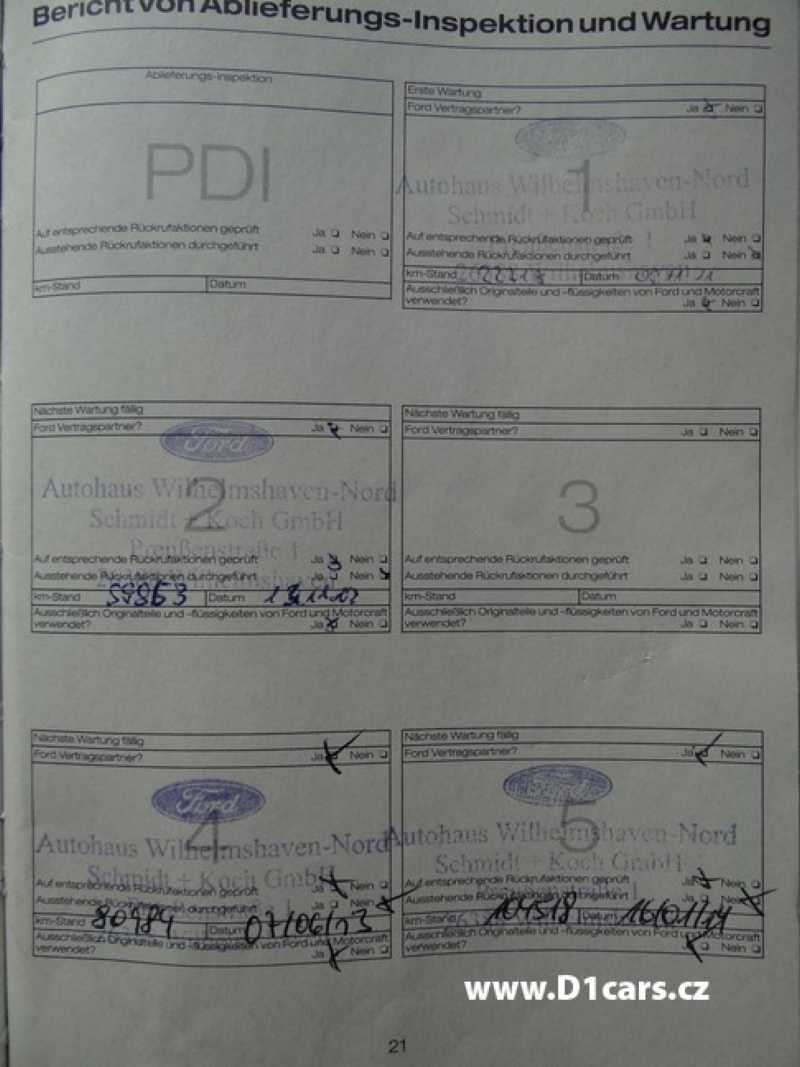 Bericht von Ablieferungs-Inspektion und Wartung
Ablieferungs-Inspektion
PDI
Auf entsprechende Rückrufaktionen geprüft Ja Nein
Ausstehende Rückrufaktionen durchgeführt Ja Nein
km-Stand Datum
Erste Wartung
Ford Vertragspartner? Ja Nein
1
Autohaus Wilhelmshaven-Nord
Schmidt + Koch GmbH
Auf entsprechende Rückrufaktionen geprüft Ja Nein
Ausstehende Rückrufaktionen durchgeführt Ja Nein
km-Stand Datum
Ausschließlich Originalteile und -flüssigkeiten von Ford und Motorcraft
verwendet? Ja Nein
Nächste Wartung fällig
Ford Vertragspartner? Ja Nein
Ford
2
Autohaus Wilhelmshaven-Nord
Schmidt + Koch GmbH
Preußenstraße 1
Auf entsprechende Rückrufaktionen geprüft Ja Nein
Ausstehende Rückrufaktionen durchgeführt Ja Nein
km-Stand Datum
Ausschließlich Originalteile und -flüssigkeiten von Ford und Motorcraft
verwendet? Ja Nein
Nächste Wartung fällig
Ford Vertragspartner? Ja Nein
3
Auf entsprechende Rückrufaktionen geprüft Ja Nein
Ausstehende Rückrufaktionen durchgeführt Ja Nein
km-Stand Datum
Ausschließlich Originalteile und -flüssigkeiten von Ford und Motorcraft
verwendet? Ja Nein
Nächste Wartung fällig
Ford Vertragspartner? Ja Nein
Ford
4
Autohaus Wilhelmshaven-Nord
Schmidt + Koch GmbH
Auf entsprechende Rückrufaktionen geprüft Ja Nein
Ausstehende Rückrufaktionen durchgeführt Ja Nein
km-Stand 80984 Datum 07/06/13
Ausschließlich Originalteile und -flüssigkeiten von Ford und Motorcraft
verwendet? Ja Nein
Nächste Wartung fällig
Ford Vertragspartner? Ja Nein
5
Autohaus Wilhelmshaven-Nord
Schmidt + Koch GmbH
Auf entsprechende Rückrufaktionen geprüft Ja Nein
Ausstehende Rückrufaktionen durchgeführt Ja Nein
km-Stand 104518 Datum 16/01/14
Ausschließlich Originalteile und -flüssigkeiten von Ford und Motorcraft
verwendet? Nein
www.D1cars.cz
21